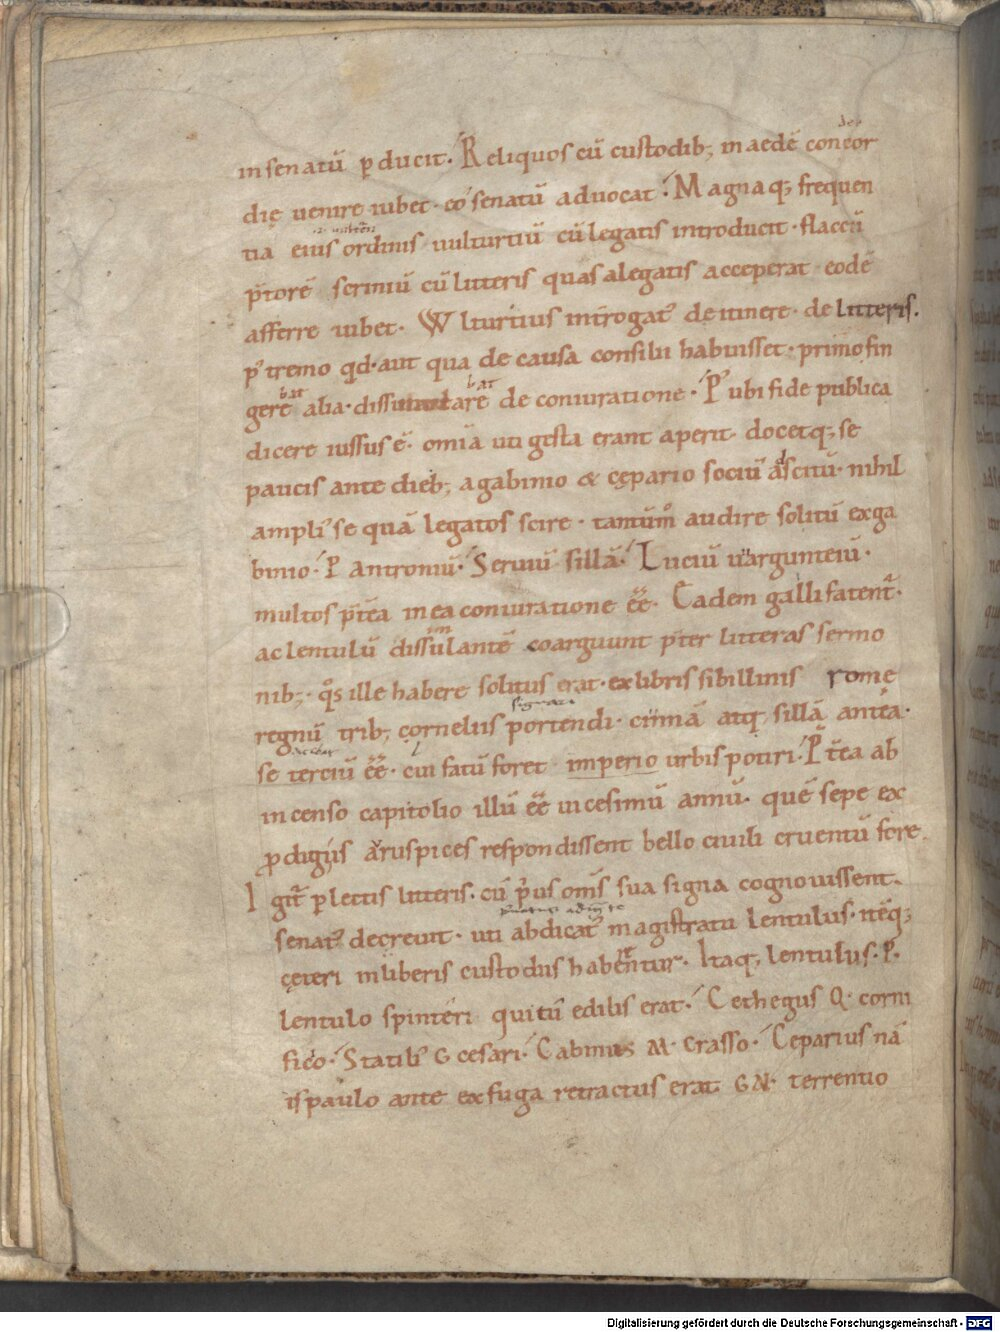 in senatū ꝑducit· Reliquos cū custodib; in aedē concor
dię uenire iubet· eo senatū aduocat· Magna q; frequen
tia eius ordinis uulturtiū cū legatis introducit· flaccū
p̄torē scriniū cū litteris quas a legatis acceperat eodē
afferre iubet· Wlturtius int̄rogatꝰ de itinere· de litteris.
pꝰtremo qd· aut qua de causa consilii habuisset· primo fin
gere alia· dissimulare de coniuratione· Pꝰ ubi fide publica
dicere iussus ē· omīa uti gesta erant aperit· docetq; se
paucis ante dieb; a gabinio & cępario sociū ascitū· nihil
ampliꝰ se quā legatos scire· tantūm̊ audire solitū ex ga
binio· P antroniū· Seruiū sillā· Luciū uargunteiū·
multos p̄tea in ea coniuratione eē̄· Eadem galli fatent̄·
ac lentulū dissimulantē coarguunt p̄ter litteras sermo
nib;· qͦs ille habere solitus erat· ex libris sibillinis rome
regnū trib; cornelus portendi· cinnā atq; sillā antea·
se terciū eē̄· cui fatū foret imperio urbis potiri· P̄tea ab
incenso capitolio illū eē̄ uicesimū annū· quē sepe ex
ꝓdigiis aruspices respondissent bello ciuili cruentū fore
Igit̄ ꝑlectis litteris· cū p̄us om̄s sua signa cognouissent·
senatꝰ decreuit· uti abdicatꝰ magistratu lentulus· itēq;
ceteri in liberis custodiis habentur· Itaq; lentulus· P·
lentulo spinteri qui tū edilis erat· Cethegus Q· corni
ficio· Statiliꝰ G cesari· Gabinius M· crasso· Ceparius nā
is paulo ante ex fuga retractus erat GN· terrentio
Digitalisierung gefördert durch die Deutsche Forschungsgemeinschaft · DFG